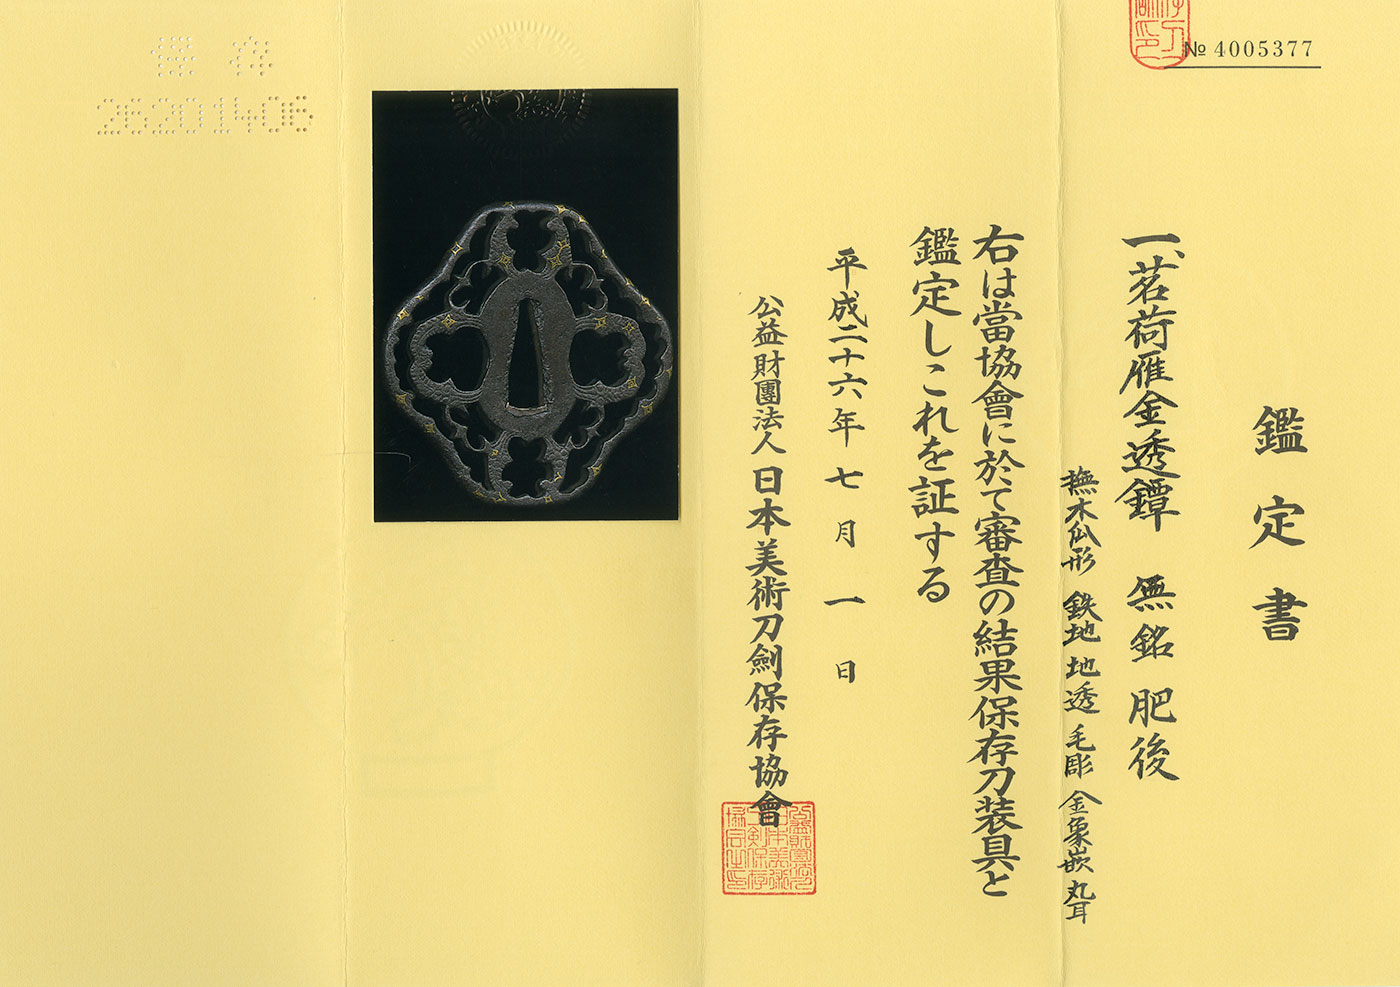 № 4005377
鑑定書
一、茗荷雁金透鐔 無銘 肥後
撫木瓜形 鉄地 地透 毛彫 金象嵌 丸耳
右は當協會に於て審査の結果保存刀装具と
鑑定しこれを証する
平成二十六年七月一日
公益財團法人 日本美術刀劍保存協會
保存
26201406